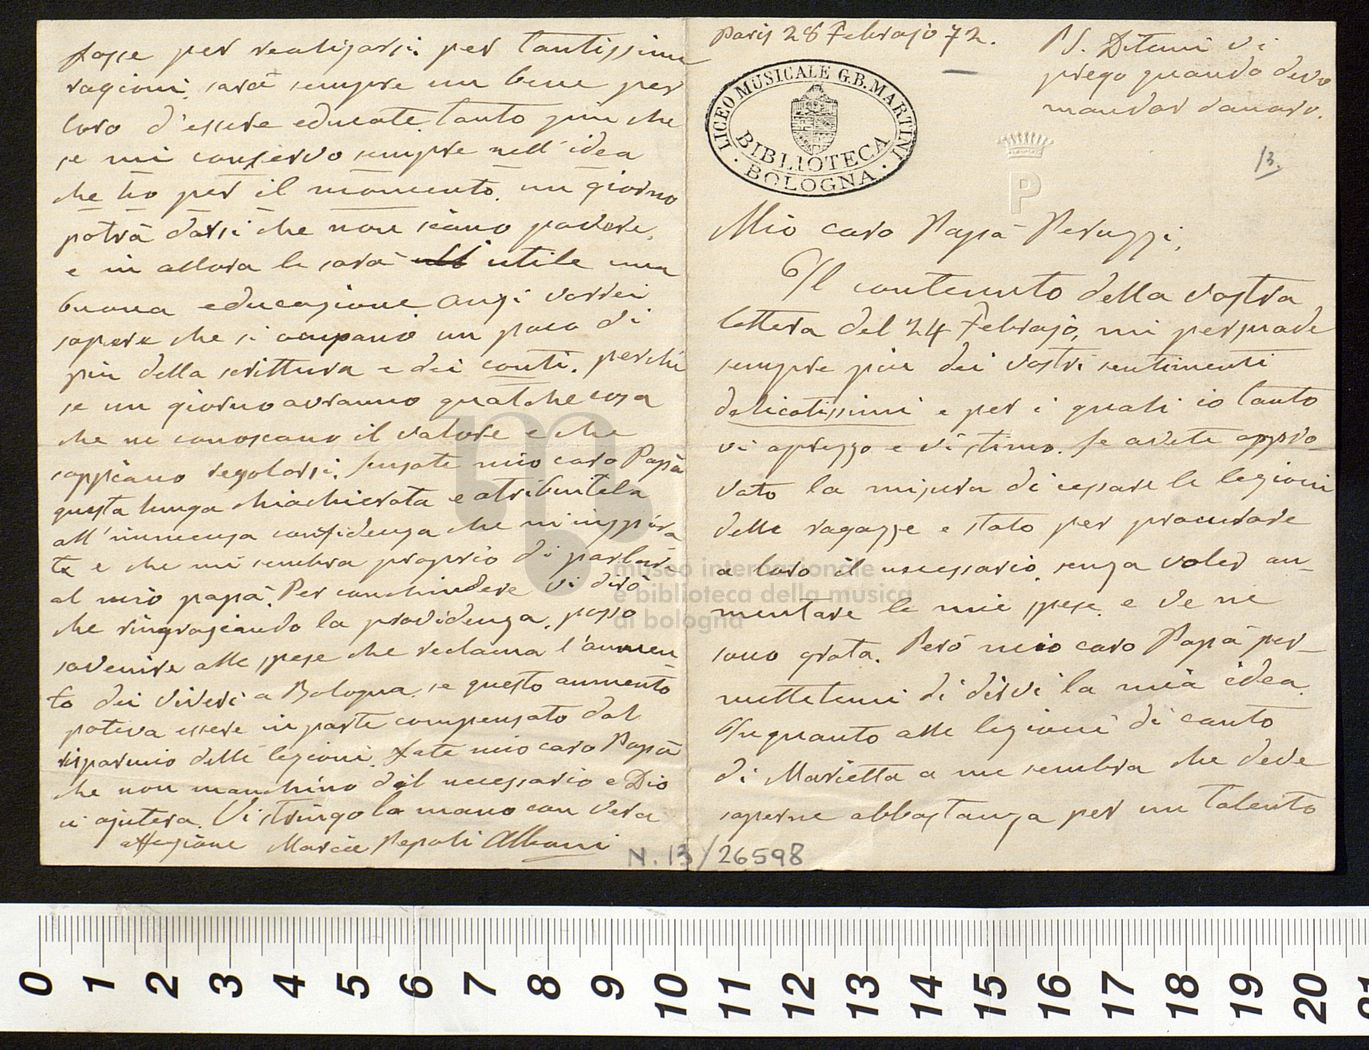 Paris 28 Febrajo 72.
PS. Ditemi vi
prego quando devo
mandar danaro.
LICEO MUSICALE G.B. MARTINI
BIBLIOTECA
BOLOGNA
13.
P
Mio caro Papà Peruzzi,
Il contenuto della vostra
lettera del 24 Febrajo, mi persuade
sempre più dei vostri sentimenti
delicatissimi e per i quali io tanto
vi aprezzo e vi stimo. Se avete appro-
vato la misura di cessare le legioni
delle ragazze e stato per procurare
a loro il necessario, senza voler au-
mentare le mie spese, e ve ne
sono grata. Però mio caro Papà per-
mettetemi di dirvi la mia idea.
In quanto alle legioni di canto
di Marietta a me sembra che deve
saperne abbastanza per un talento
fosse per realizarsi per tantissime
ragioni, sarà sempre un bene per
loro d'essere educate, tanto più che
se mi conservo sempre nell'idea
che ho per il momento, un giorno
potrà darsi che non siano povere,
e in allora le sarà utile una
buona educazione anzi vorrei
sapere che si ocupano un poco di
più della scrittura e dei conti, perchè
se un giorno avranno qualche cosa
che ne conoscano il valore e che
sappiano regolarsi. Scusate mio caro Papà
questa lunga chiachierata e atribuitela
all'immensa confidenza che m'inspira
te e che mi sembra proprio di parlare
al mio papà. Per conchiudere vi dirò
che ringraziando la providenza, posso
sovenire alle spese che reclama l'aumen-
to dei viveri a Bologna, se questo aumento
poteva essere in parte compensato dal
risparmio delle legioni, fate mio caro Papà
che non manchino del necessario e Dio
ci ajutera. Vi stringo la mano con vera
affezione Maria Pepoli Alboni
N. 13/26598
museo internazionale
e biblioteca della musica
di bologna
0 1 2 3 4 5 6 7 8 9 10 11 12 13 14 15 16 17 18 19 20 21